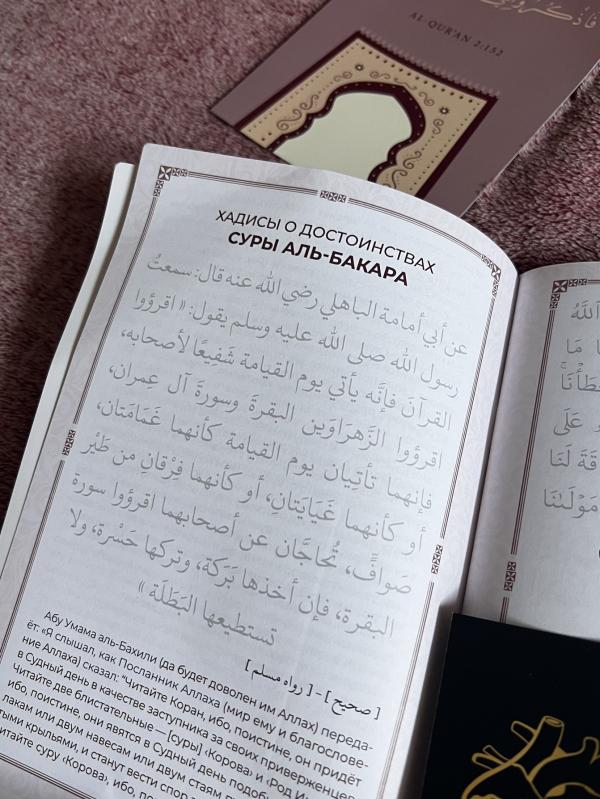 AL-QUR'AN 2:152
ХАДИСЫ О ДОСТОИНСТВАХ
СУРЫ АЛЬ-БАКАРА
عن أبي أمامة الباهلي رضي الله عنه قال: سمعتُ
رسول الله صلى الله عليه وسلم يقول: « اقرؤوا
القرآنَ فإنَّه يأتي يوم القيامة شَفِيعًا لأصحابه،
اقرؤوا الزَّهرَاوَين البقرةَ وسورةَ آل عِمران،
فإنهما تأتِيان يوم القيامة كأنهما غَمَامَتان،
أو كأنهما غَيَايَتانِ، أو كأنهما فِرْقانِ من طَيْر
صَوافٍّ، تُحاجَّان عن أصحابهما اقرؤوا سورة
البقرة، فإن أخذها بَرَكة، وتركها حَسْرة، ولا
تستطيعها البَطَلَة »
[ صحيح ] – [ رواه مسلم ]
Абу Умама аль-Бахили (да будет доволен им Аллах) переда-
ёт: «Я слышал, как Посланник Аллаха (мир ему и благослове-
ние Аллаха) сказал: "Читайте Коран, ибо, поистине, он придёт
в Судный день в качестве заступника за своих приверженцев
Читайте две блистательные — [суры] ‹Корова› и ‹Род
ибо, поистине, они явятся в Судный день
лакам или двум навесам или двум стаям
крыльями, и станут вести спор
суру ‹Корова›, ибо,
اللَّهُ
مَا
عَلَى
لَنَا
مَوْلَىٰنَا